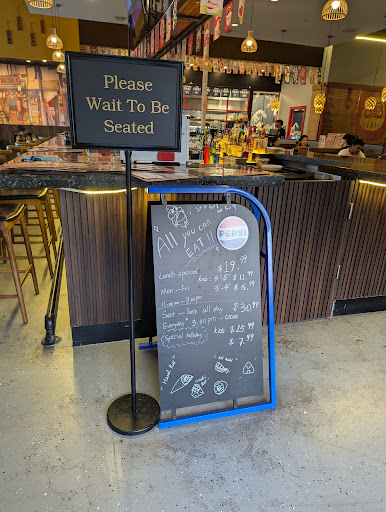 Please
Wait To Be
Seated
All you can
EAT!!
PEPSI
Lunch special $19.99
Mon - Fri Kids 4'-5' $11.99
11:00am - 3:00pm 3'-4' $6.99
Sat - Sun all day $30.99
Everyday 3:00pm - close
(Special holiday) Kids $15.99
$7.99
Hand Roll